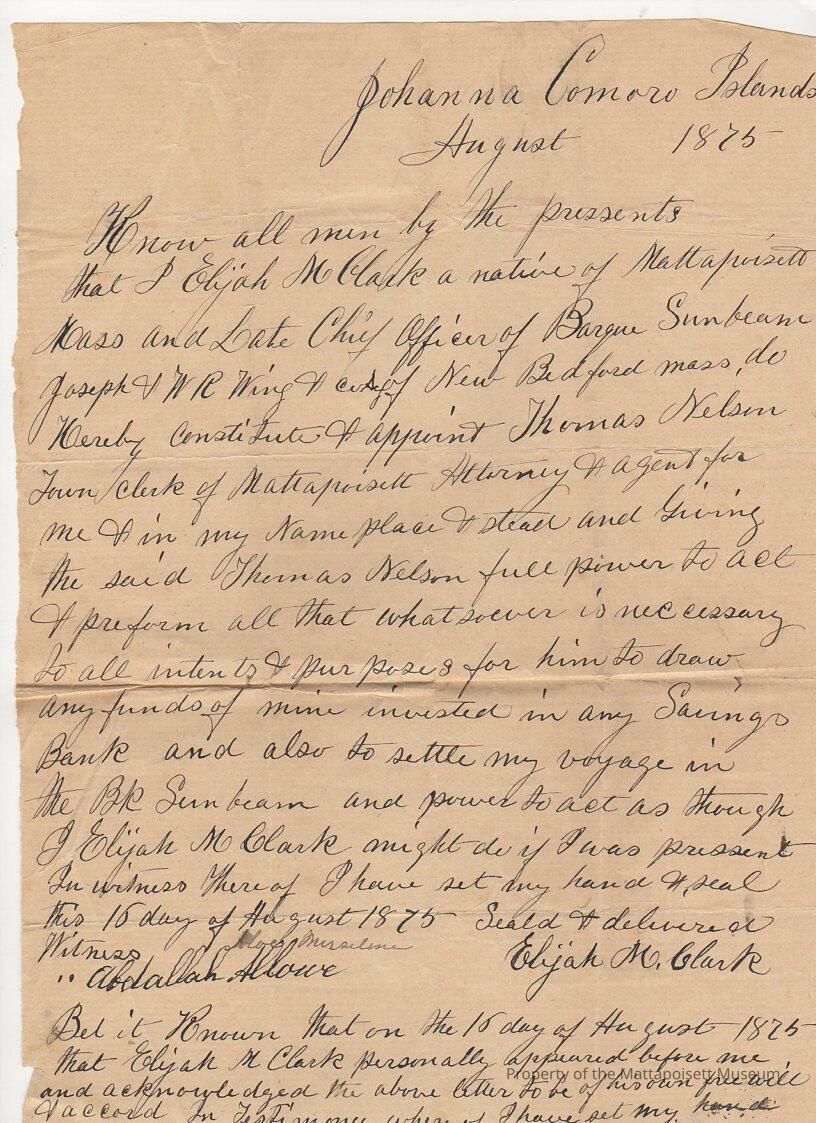 Johanna Comoro Islands
August 1875
Know all men by the pressents
that I Elijah M Clark a native of Mattapoisett
Mass and Late Chief Officer of Barque Sunbeam
Joseph & W R Wing & co of New Bedford mass, do
Hereby Constitute & appoint Thomas Nelson
Town Clerk of Mattapoisett Attorney & agent for
me & in my Name place & stead and Giving
the said Thomas Nelson full power to act
& preform all that whatsoever is neccessary
to all intents & purposes for him to draw
any funds of mine invested in any Savings
Bank and also to settle my voyage in
the BK Sunbeam and power to act as though
I Elijah M Clark might do if I was pressent
In witness there of I have set my hand & seal
this 16 day of August 1875 Seald & delivered
Witness
" Abdallah Allowe Elijah M. Clark
Bet it Known that on the 16 day of August 1875
that Elijah M Clark personally appeared before me
Property of the Mattapoisett Museum
and acknowledged the above letter to be of his own free will
& accord In Testimony where of I have set my hand